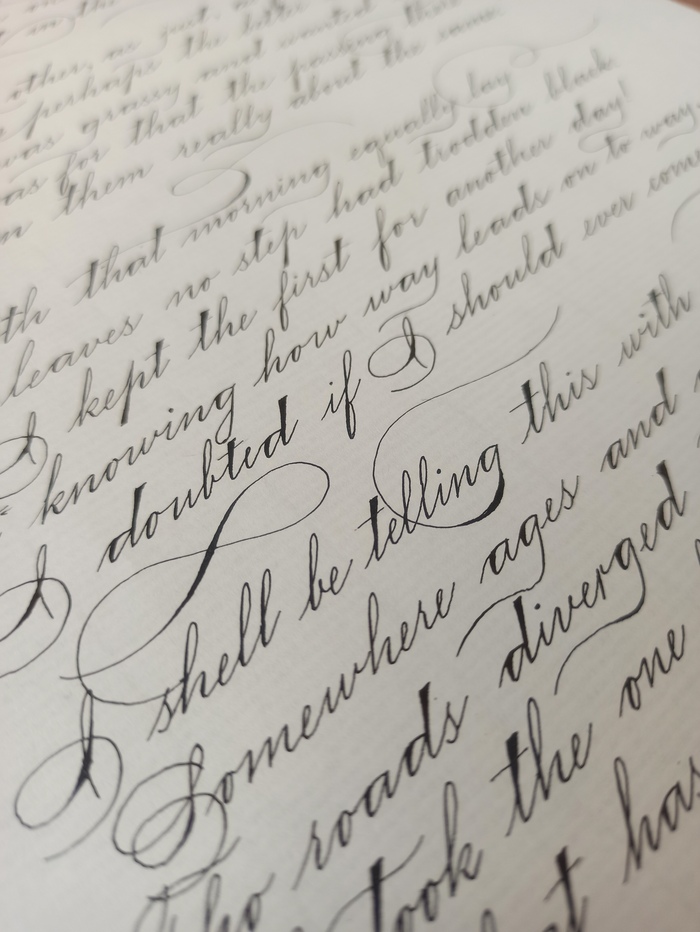 in the
other, as just,
perhaps the
was grassy and wanted
as for that the passing there
them really about the same
th that morning equally lay
leaves no step had trodden black
I kept the first for another day!
knowing how way leads on to way
I doubted if I should ever come
I shell be telling this with
Somewhere ages and
Tho roads diverged
took the one
t has